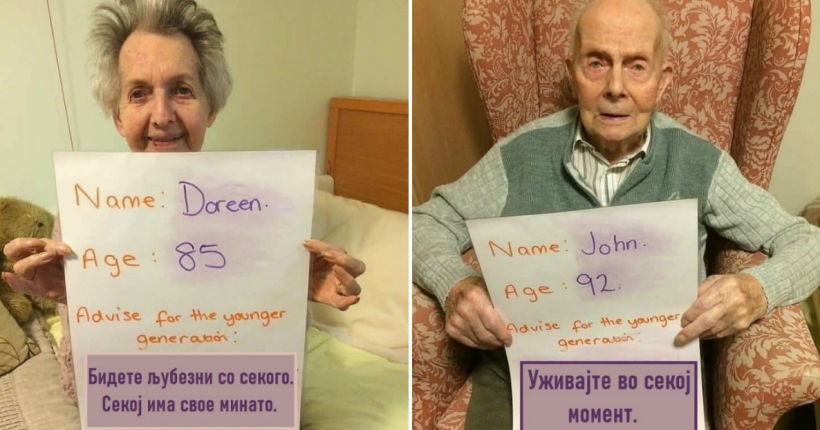 Name: Doreen.
Age: 85
Advise for the younger
generation:
Бидете љубезни со секого.
Секој има свое минато.
Name: John.
Age: 92.
Advise for the younger
generation:
Уживајте во секој
момент.